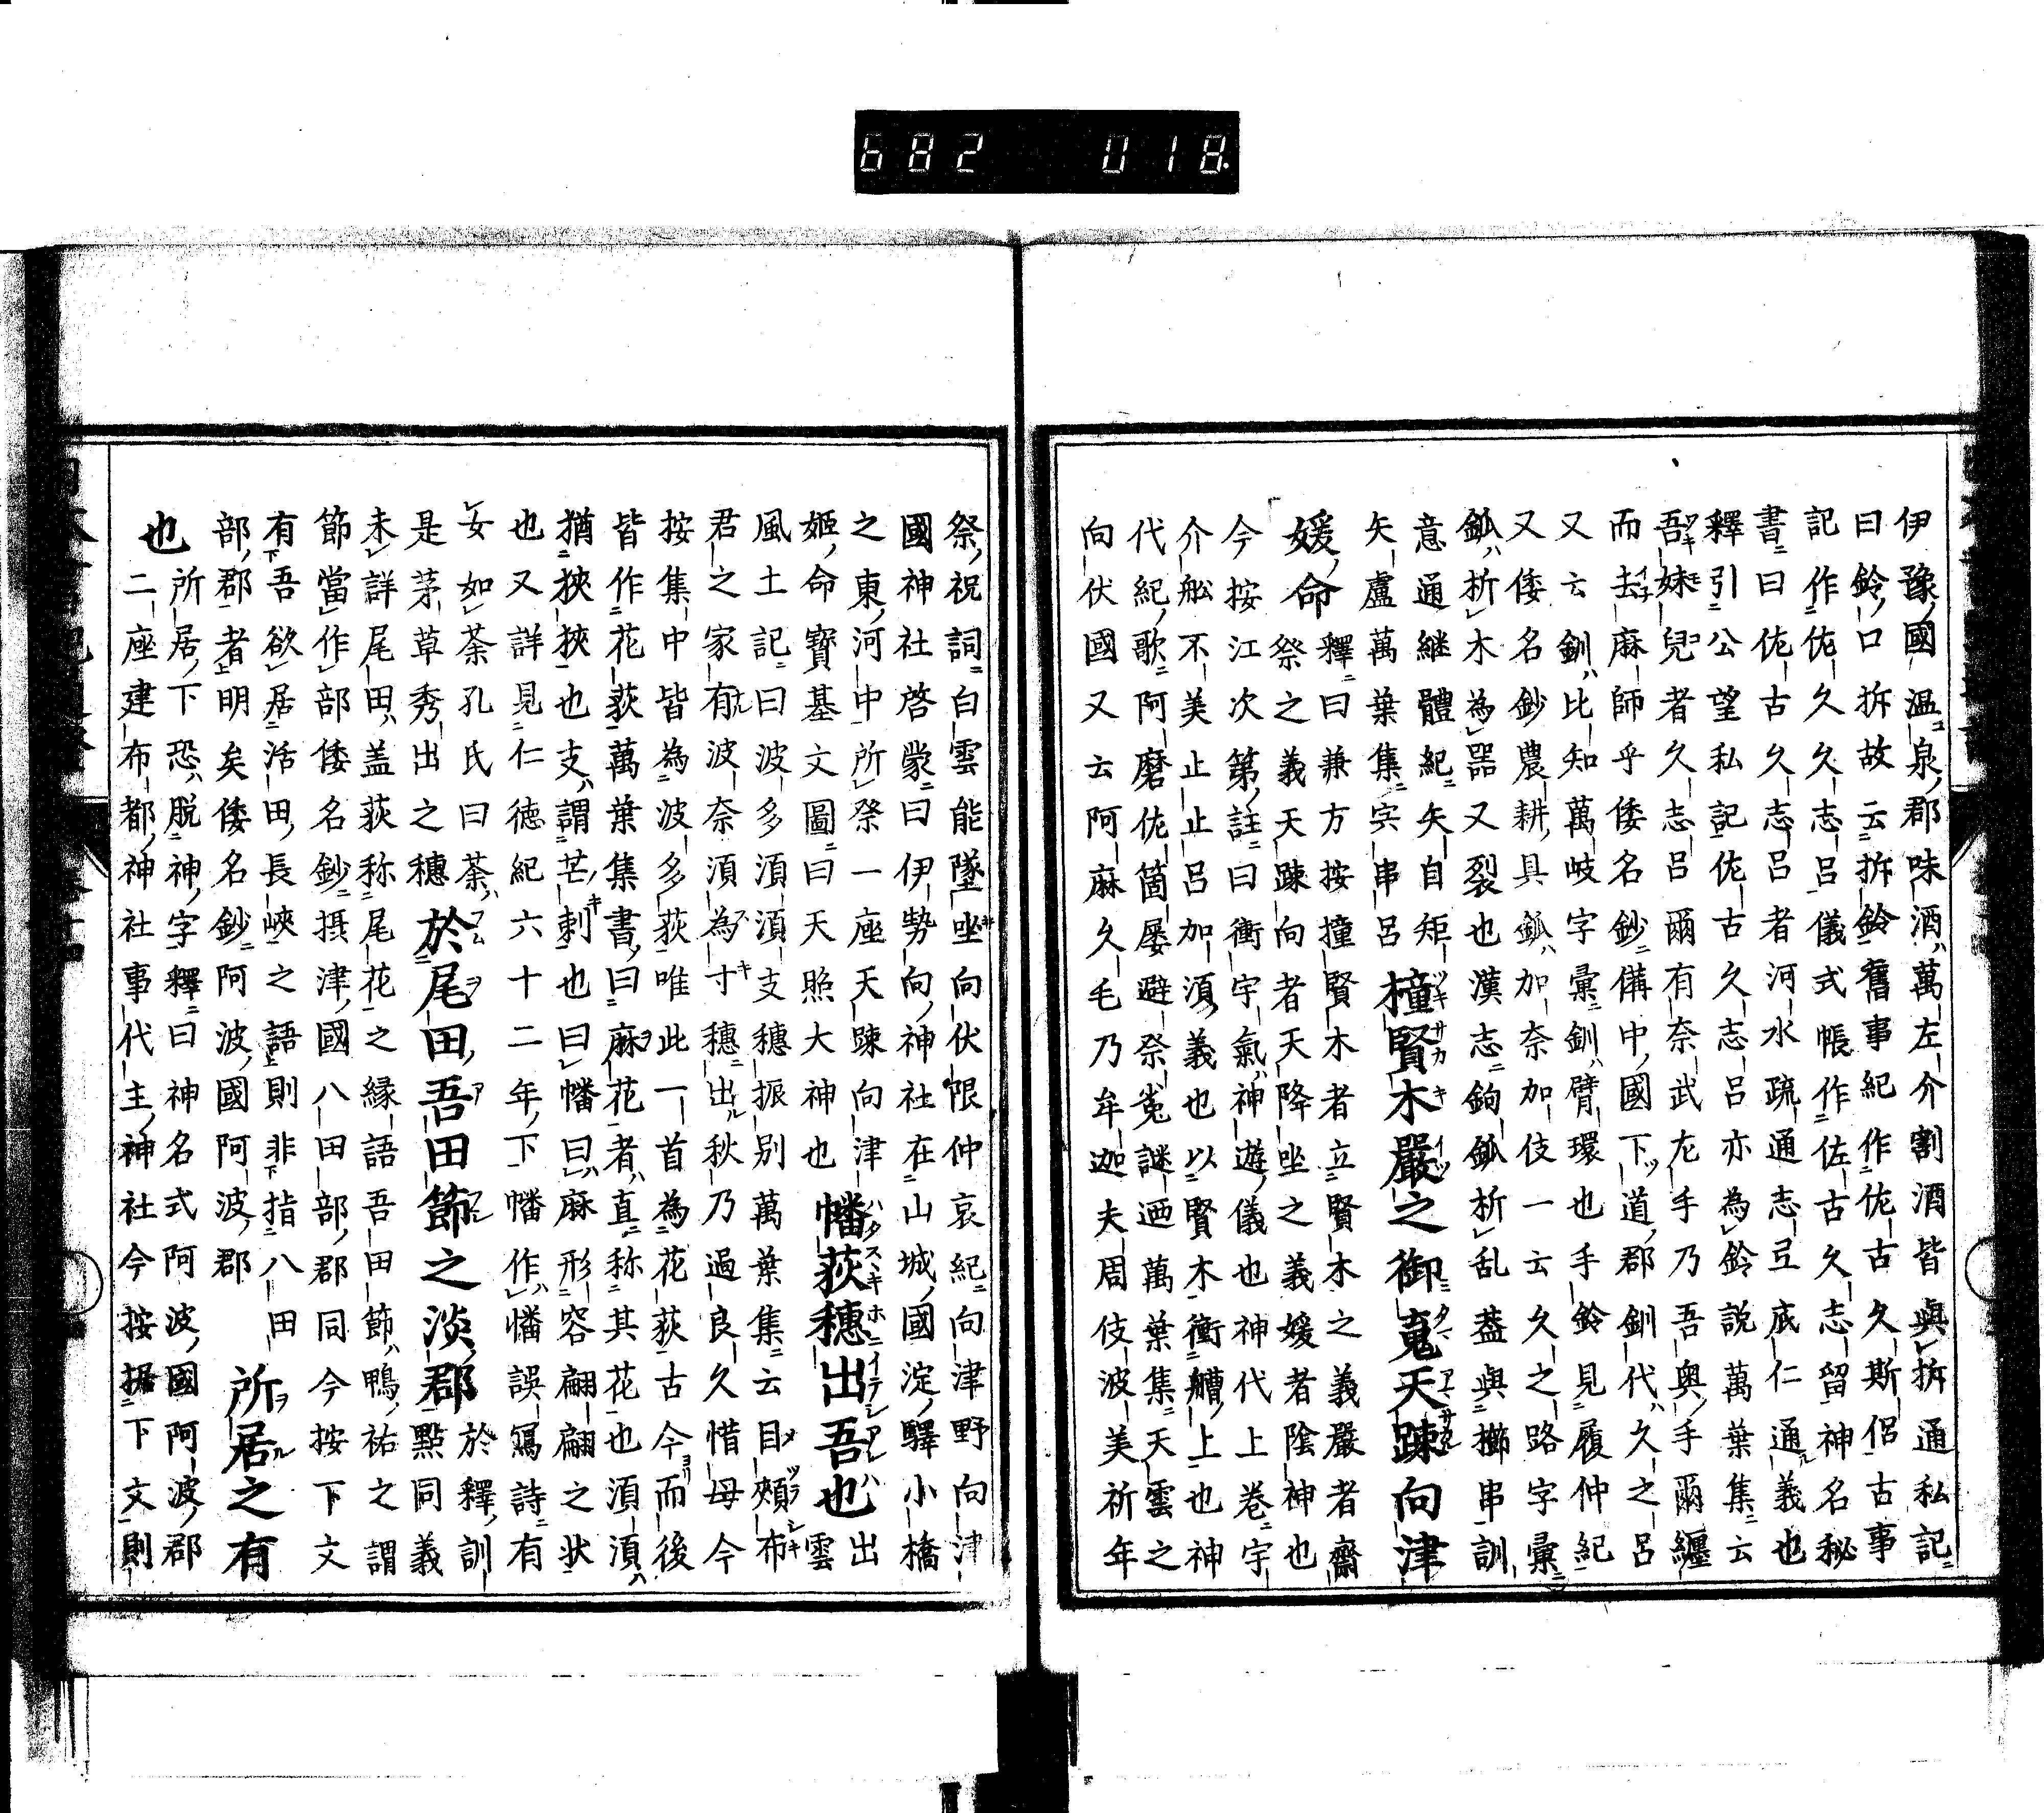 682 018
伊豫國温泉郡味酒萬左介割酒皆與拆通私記
曰鈴口拆故云拆鈴舊事紀作佐古久斯侶古事
記作佐久久志呂儀式帳作佐古久志留神名秘
書曰佐古久志呂者河水疏通志豆底仁通義也
釋引公望私記佐古久志呂亦為鈴説萬葉集云
吾妹兒者久志呂爾有奈武左手乃吾奥手爾纏
而去麻師乎倭名鈔備中國下道郡釧代久之呂
又云釧比知萬岐字彙釧臂環也手鈴見履仲紀
又倭名鈔農耕具鈲加奈加伎一云久之路字彙
鈲析木為噐又裂也漢志鉤鈲析乱葢與擳串訓
意通継體紀矢自矩
矢盧萬葉集宍串呂撞賢木嚴之御䰟天踈向津
媛命釋曰兼方按撞賢木者立賢木之義嚴者齋
祭之義天踈向者天降坐之義媛者陰神也
今按江次第註曰衝宇氣神遊儀也神代上卷宇
介舩不美止止呂加須義也以賢木衝艚上也神
代紀歌阿磨佐箇屡避祭菟謎廼萬葉集天雲之
向伏國又云阿麻久毛乃牟迦夫周伎波美祈年
祭祝詞白雲能墜坐向伏限仲哀紀向津野向津
國神社啓蒙曰伊勢向神社在山城國淀驛小橋
之東河中所祭一座天踈向津
姫命寳基文圖曰天照大神也幡荻穂出吾也出雲
風土記曰波多須支穗振別萬葉集云目頰布
君之家有波奈須為寸穗出秋乃過良久惜母今
按集中皆為波多荻唯此一首為花荻古今而後
皆作花荻萬葉集書曰麻花者直称其花也須須
猶狹狹也支謂芒刺也曰幡曰麻形容翩翩之状
也又詳見仁徳紀六十二年下幡作幡誤寫詩有
女如荼孔氏曰荼
是茅草秀出之穗於尾田吾田節之淡郡於釋訓點同義
未詳尾田盖荻称尾花之縁語吾田節鴨祐之謂
節當作部倭名鈔摂津國八田部郡同今按下文
有吾欲居活田長峽之語則非指八田
部郡者明矣倭名鈔阿波國阿波郡所居之有
也所居下恐脱神字釋曰神名式阿波國阿波郡
二座建布都神社事代主神社今按据下文則